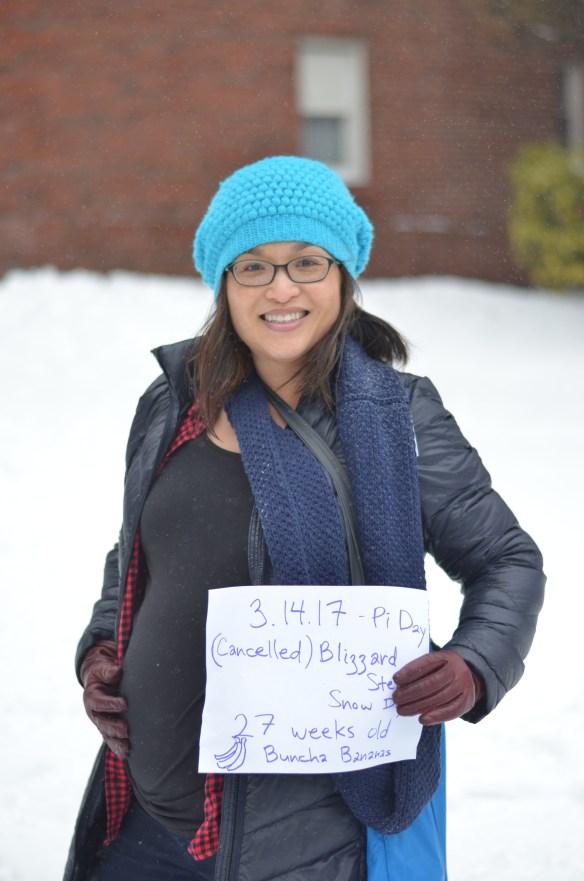 3.14.17 - Pi Day
(Cancelled) Blizzard
Snow
27 weeks old
Buncha Bananas